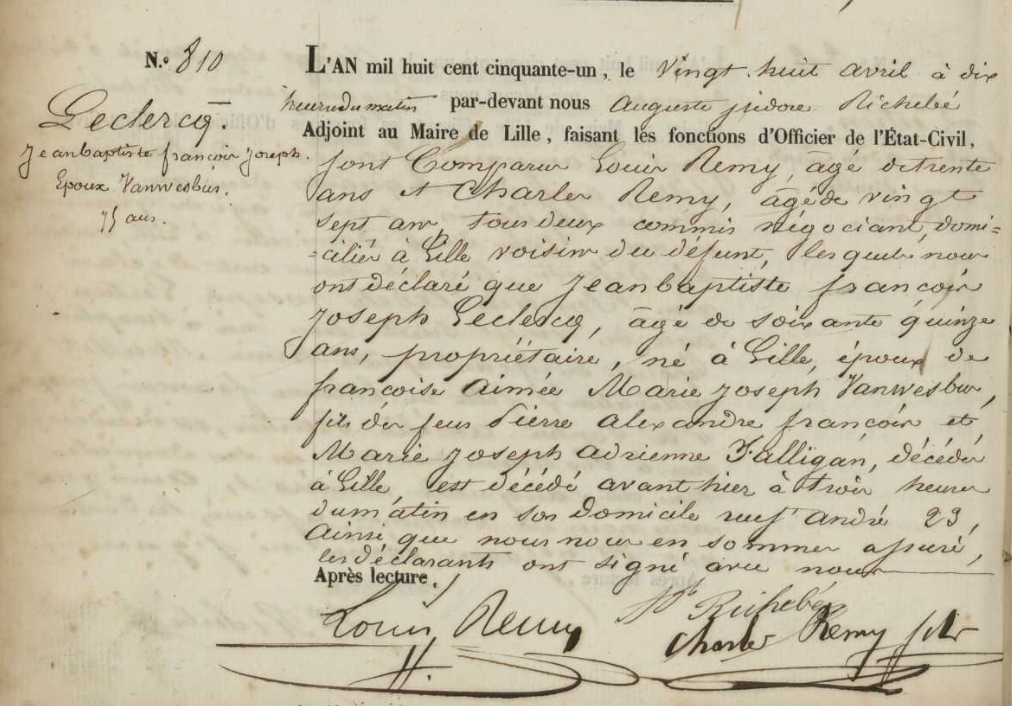 N.° 810
Leclercq.
Jeanbaptiste françois Joseph.
Epoux Vanwesbus.
75 ans.
L'AN mil huit cent cinquante-un, le vingt huit avril à dix
heures du matin par-devant nous Auguste jsidore Richebé
Adjoint au Maire de Lille, faisant les fonctions d'Officier de l'État-Civil,
sont Comparus Louis Remy, âgé de trente
ans et Charles Remy, âgé de vingt
sept ans, tous deux commis négociant, domi=
=ciliés à Lille voisins du défunt, lesquels nous
ont déclaré que Jeanbaptiste françois
Joseph Leclercq, âgé de soixante quinze
ans, propriétaire, né à Lille, époux de
françoise aimée Marie Joseph Vanwesbus,
fils des feus Pierre alexandre françois et
Marie Joseph adrienne Falligan, décédés
à Lille, est décédé avant hier à trois heures
du matin en son domicile rue St andré 23,
ainsi que nous nous en sommes assuré,
les déclarants ont signé avec nous
Après lecture.
Louis Remy
Richebé
Charles Remy fils